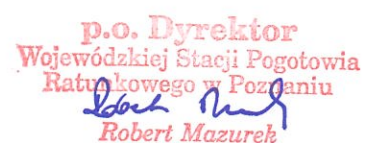 p.o. Dyrektor
Wojewódzkiej Stacji Pogotowia
Ratunkowego w Poznaniu
Robert Mazurek